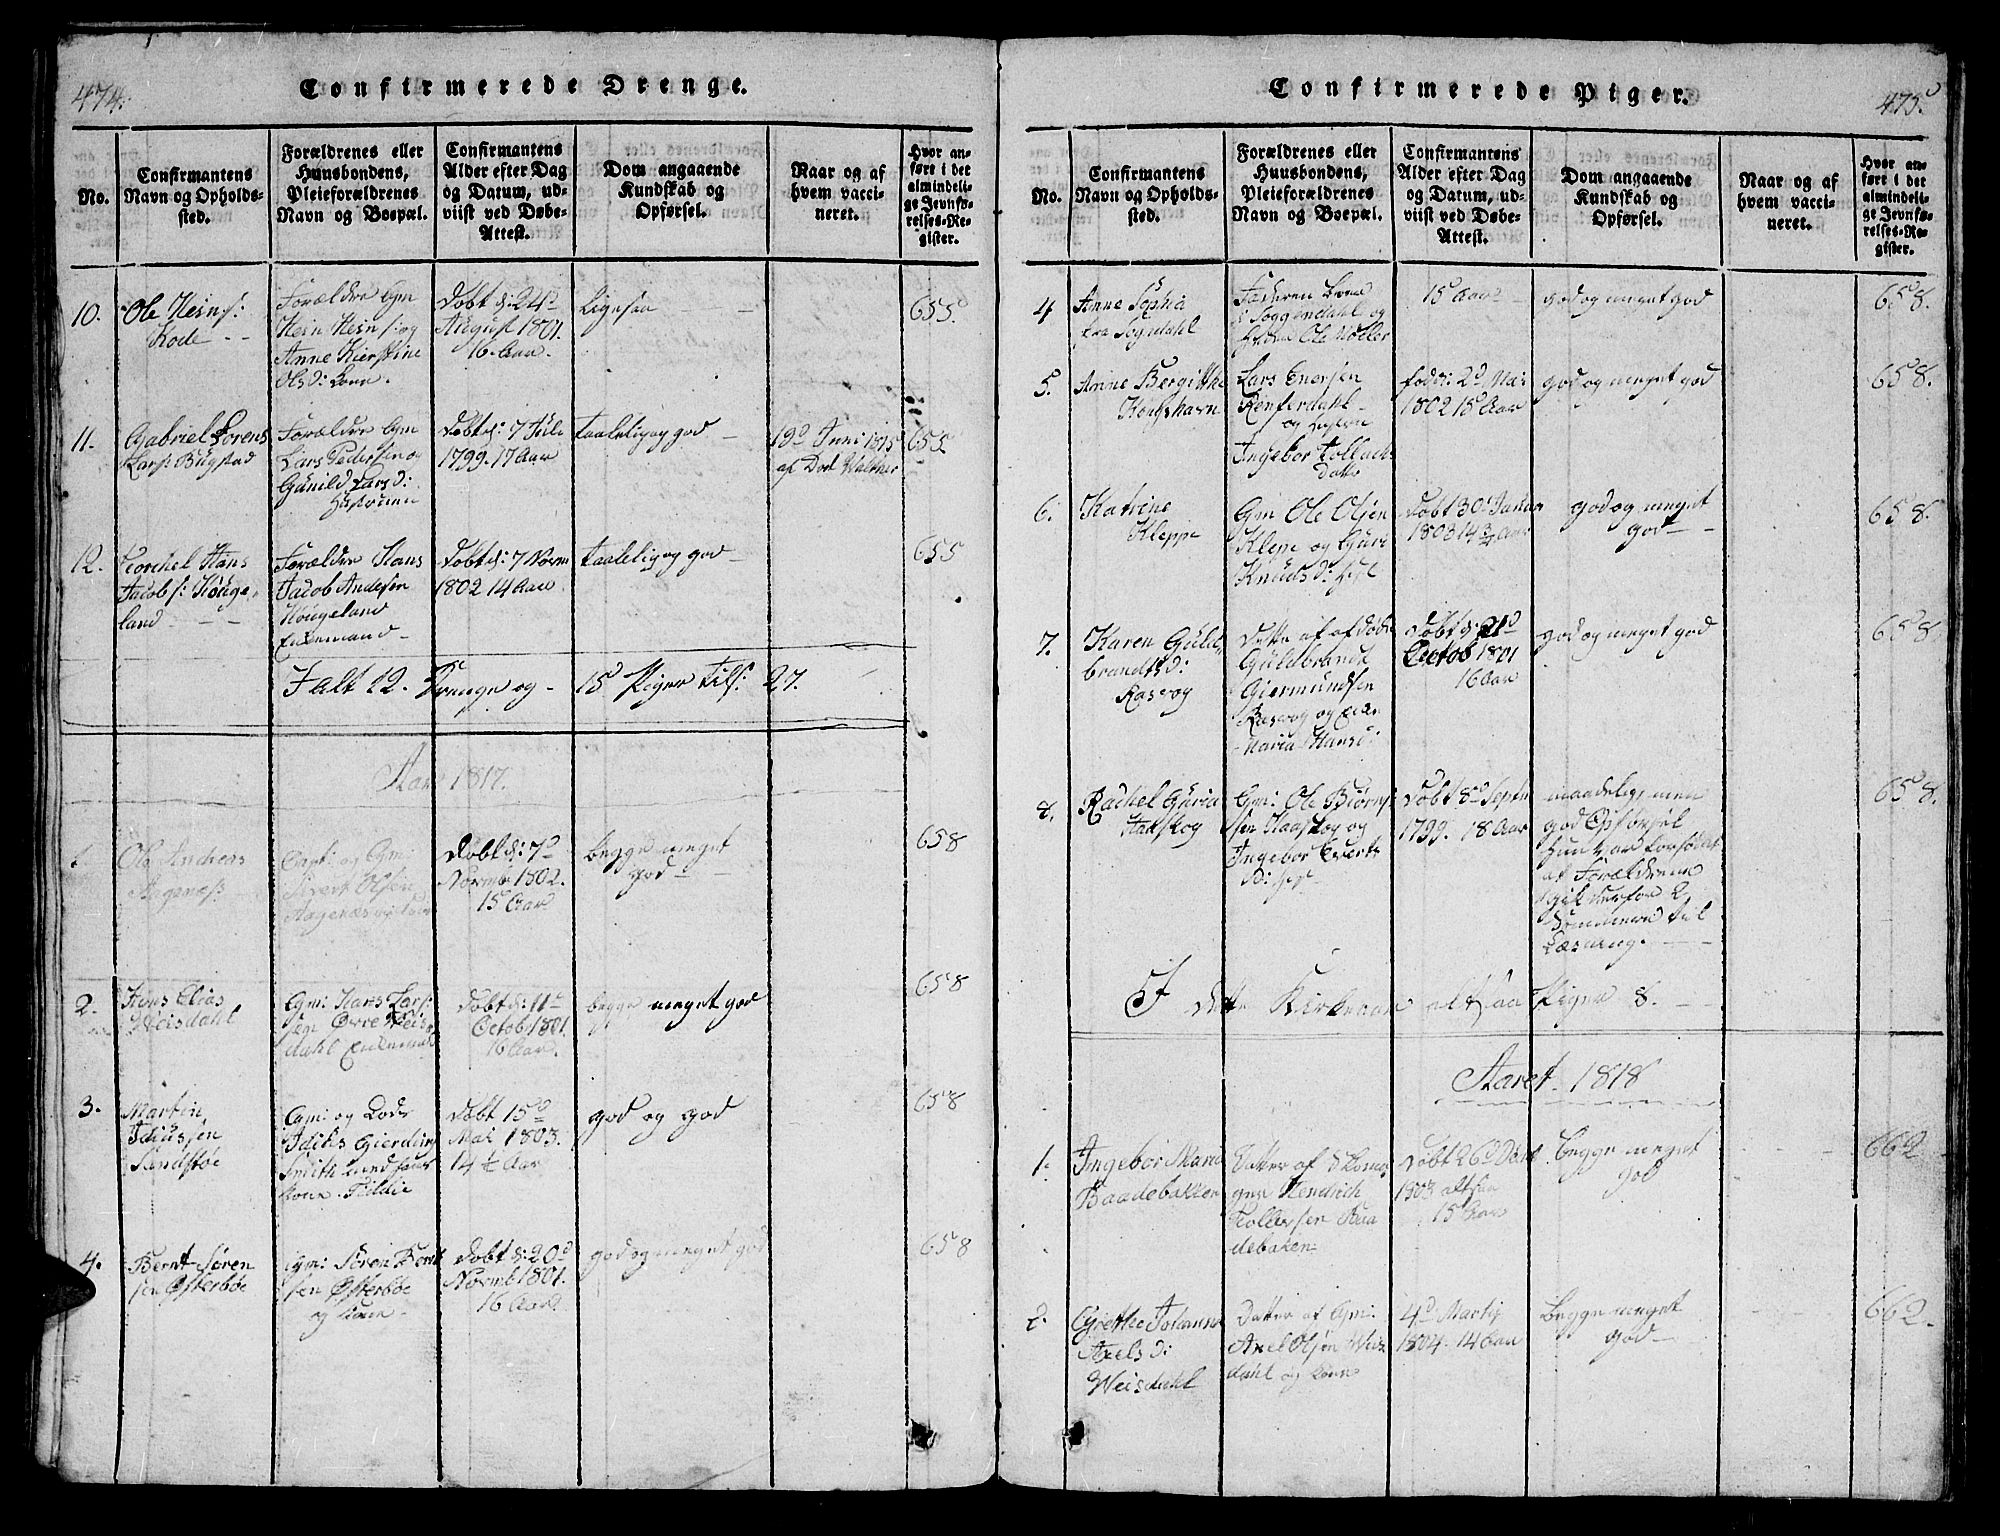 474.
Confirmerede Drenge.
No.
Confirmantens
Navn og Opholds-
sted.
Forældrenes eller
Huusbondens,
Pleieforældrenes
Navn og Boepæl.
Confirmantens
Alder efter Dag
og Datum, ud-
viist ved Døbe-
Attest.
Dom angaaende
Kundskab og
Opførsel.
Naar og af
hvem vacci-
neret.
Hvor an-
ført i det
almindeli-
ge Jevnfø-
relses-Re-
gister.
10.
Ole Heins:
Kode
Forældre Gm
Hein Heins: og
Anne Kierstine
Olsd: Kone.
Døbt d: 24d
August 1801.
16 Aar.
Ligesaa
655
11.
Gabriel Lorens
Lars: Bugstad
Forældre Gm
Lars Pedersen og
Gunild Larsd:
Døbt d: 7 Juli
1799. 17 Aar
taalelig og god
19d Juni 1815
af Doct Walther
655
12.
Torchel Hans
Jacobs: Houge-
land
Forældre Hans
Jacob Andersen
Hougeland
Enkemand
Døbt d: 7 Novm
1802 14 Aar
taalelig og god
655
I alt 12. Drenge og - 15 Piger tils: 27.
Aar 1817.
1
Ole Andreas
Aagenæs
Gm:
Sivert Olsen
Aagenæs og Kone
Døbt d: 7d
Novmb 1802.
15 Aar
begge meget
god
658
2.
Hans Elias
Weisdahl
Gm: Hans Lars:
sen Øvre Weis-
dahl Enkemand
Døbt d: 11d
Octob 1801.
16 Aar.
begge meget god
658
3.
Martin
Sandstøe
Gm: og Lods
Døbt 15d
Mai 1803.
14 ½ Aar
god og god
658
4.
Bernt Søren
sen Østerbøe
Gm: Søren Bernt
sen Østerbøe
og Kone
Døbt d: 20d
Novmb 1801.
16 Aar
god og meget god
658
475.
Confirmerede Piger.
No.
Confirmantens
Navn og Opholds-
sted.
Forældrenes eller
Huusbondens,
Pleieforældrenes
Navn og Boepæl.
Confirmantens
Alder efter Dag
og Datum, ud-
viist ved Døbe-
Attest.
Dom angaaende
Kundskab og
Opførsel.
Naar og af
hvem vacci-
neret.
Hvor an-
ført i det
almindeli-
ge Jevnfø-
relses-Re-
gister.
4
Anne Sophia
fra Sogndahl
Faderen
i Soggendahl og
Ole Møller
15 Aar
god og meget god
658.
5.
Anne Bergitthe
Kongshavn
Lars Enersen
og
Ingebor
født d: 2d Mai
1802 15 Aar
god og meget god
658.
6.
Katrine
Kleppe
Gm Ole Olsen
Klepe og Guri
Knuds d:
Døbt 30 Janua
1803 14¾ Aar
god og meget
god
658.
7.
Karen Guld-
brandtsd:
Rasvog
Datter af afdøde
Guldbrandt
Giermundsen
Rasvog og Enke
Maria Hansd:
Døbt d: 21d
Octob 1801
16 Aar
god og meget god
658
8.
Rachel Guria
Haaskog
Gm: Ole Biørn-
sen Haaskog og
Ingebor Everts
D:
Døbt 8d Septr
1799. 18 Aar
maadelig, men
god Opførsel
hun var forsømt
af Forældrene
gik derfor 2
Sommere til
Læsning.
658.
I dette Kirkeaar altsaa Piger 8.
Aaret 1818
1.
Ingebor Maria
Baadebakken
Datter af Skoma
ger Hendrich
Tollefsen Baa
debaken
Døbt 26d
1803 altsaa
15 Aar
begge meget
god
662
2.
Grethe Johanne
Axelsd:
Weisdahl
Datter af Gm:
Axel Olsen Weis
dahl og Kone
4d Martij
1804. 14 Aar
begge meget
god
662.